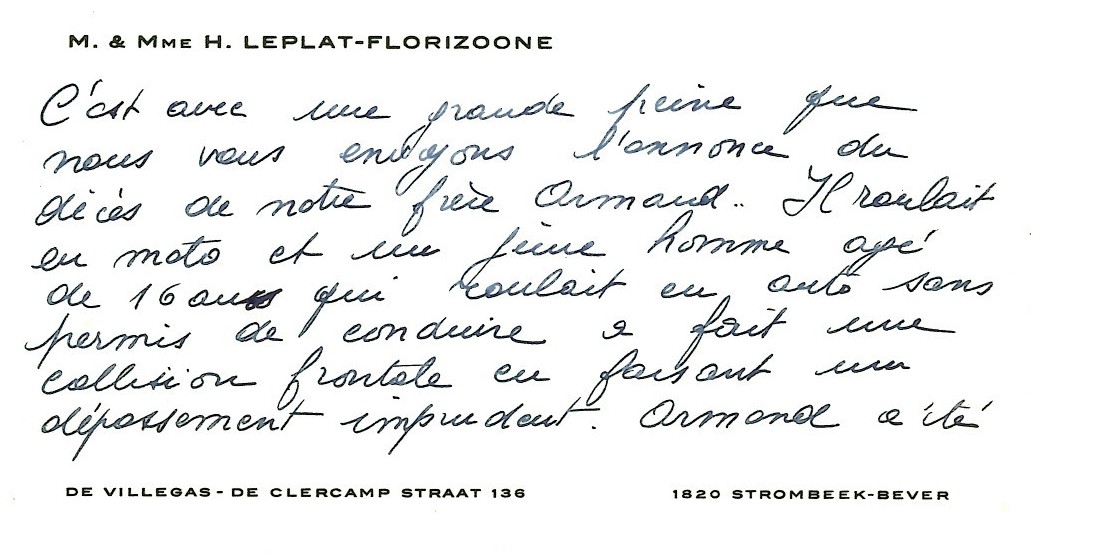 M. & MME H. LEPLAT-FLORIZOONE
C'est avec une grande peine que
nous vous envoyons l'annonce du
décès de notre frère Armand.. Il roulait
en moto et un jeune homme agé
de 16 ans qui roulait en auto sans
permis de conduire a fait une
collision frontale en faisant un
dépassement imprudent. Armand a été
DE VILLEGAS - DE CLERCAMP STRAAT 136
1820 STROMBEEK-BEVER